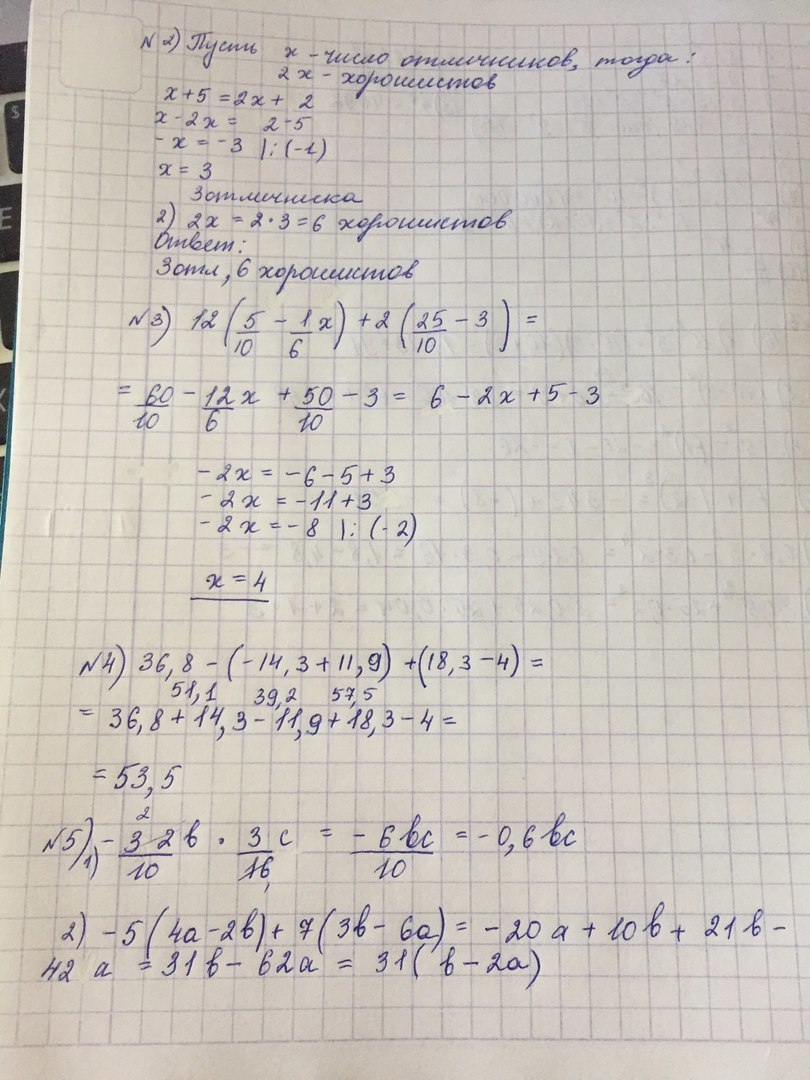 №2) Пусть x - число отличников, тогда:
2x - хорошистов
x + 5 = 2x + 2
x - 2x = 2 - 5
- x = -3 |: (-1)
x = 3
3 отличника
2) 2x = 2 · 3 = 6 хорошистов
Ответ:
3 отл, 6 хорошистов
№3) 12 (5/10 - 1/6 x) + 2 (25/10 - 3) =
= 60/10 - 12/6 x + 50/10 - 3 = 6 - 2x + 5 - 3
-2x = -6 - 5 + 3
-2x = -11 + 3
-2x = -8 |: (-2)
x = 4
№4) 36,8 - (-14,3 + 11,9) + (18,3 - 4) =
51,1 39,2 57,5
= 36,8 + 14,3 - 11,9 + 18,3 - 4 =
= 53,5
2
№5) 1) - 32/10 в · 3/16 с = - 6вс/10 = -0,6вс
2) -5 (4а - 2в) + 7 (3в - 6а) = -20а + 10в + 21в -
42а = 31в - 62а = 31( в - 2а)